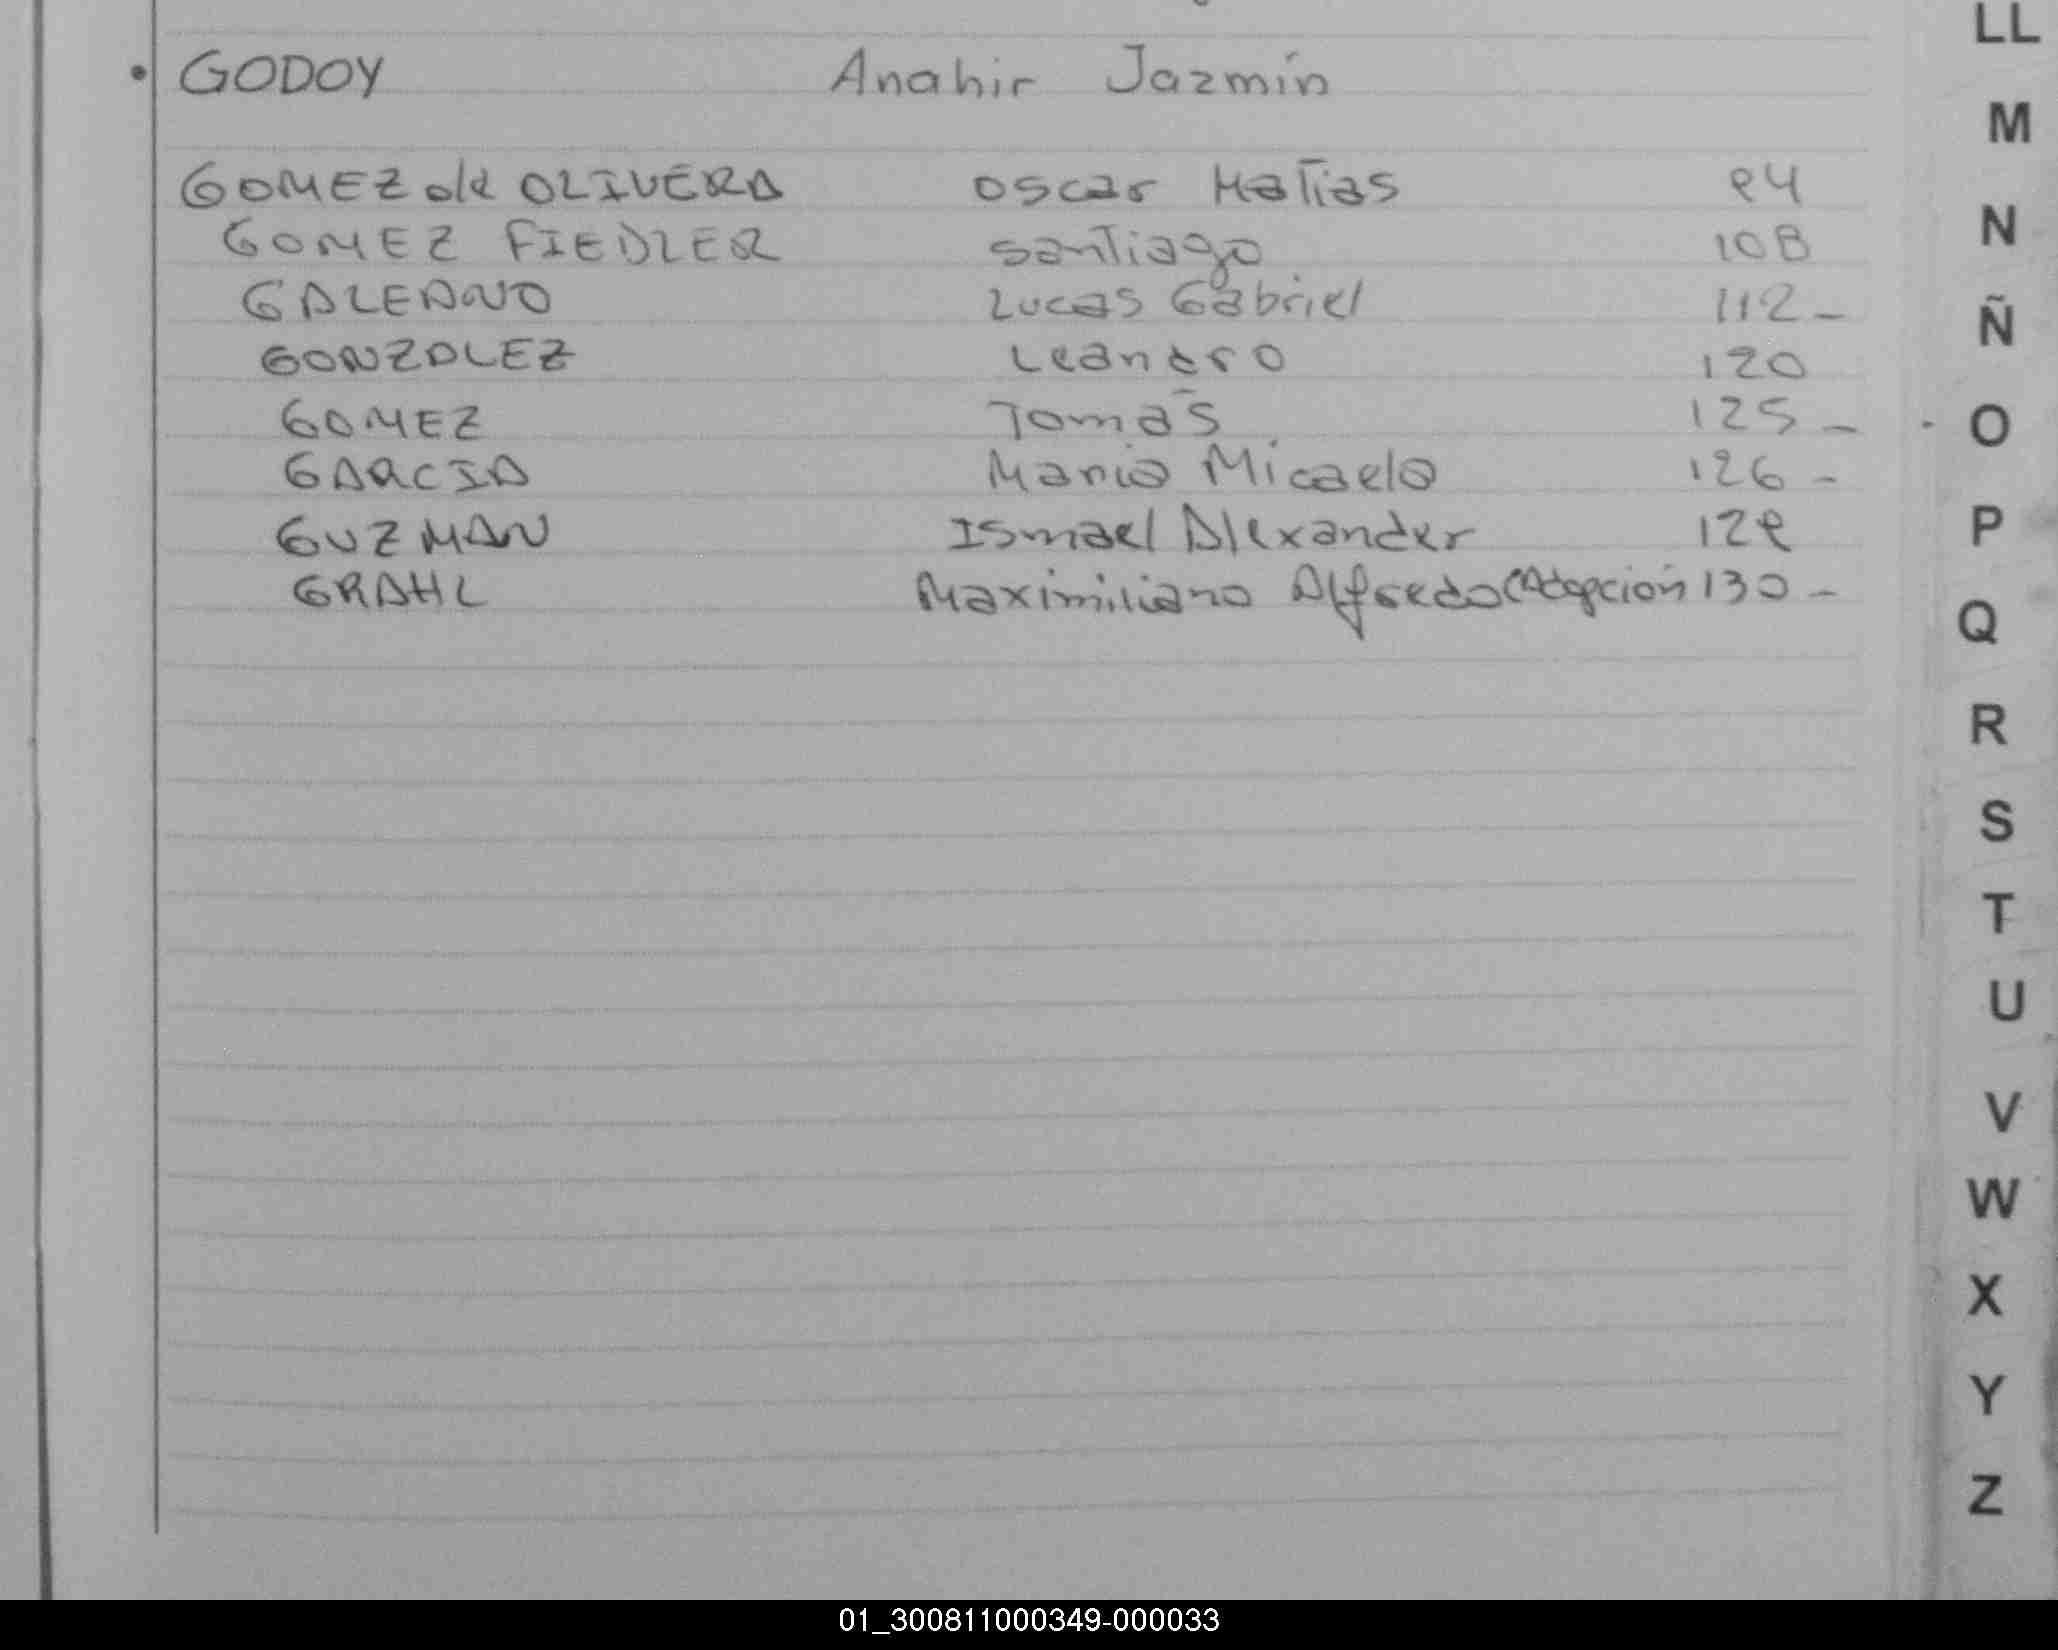 LL
• GODOY Anahir Jazmín
M
GOMEZ de OLIVERA Oscar Matías 94
N
GOMEZ FIEDLER Santiago 108
GALEANO Lucas Gabriel 112 -
Ñ
GONZALEZ Leandro 120
GOMEZ Tomás 125 -
O
GARCIA María Micaela 126 -
P
GUZMAN Ismael Alexander 129
GRAHL Maximiliano Alfredo (Adopción 130 -
Q
R
S
T
U
V
W
X
Y
Z
01_300811000349-000033